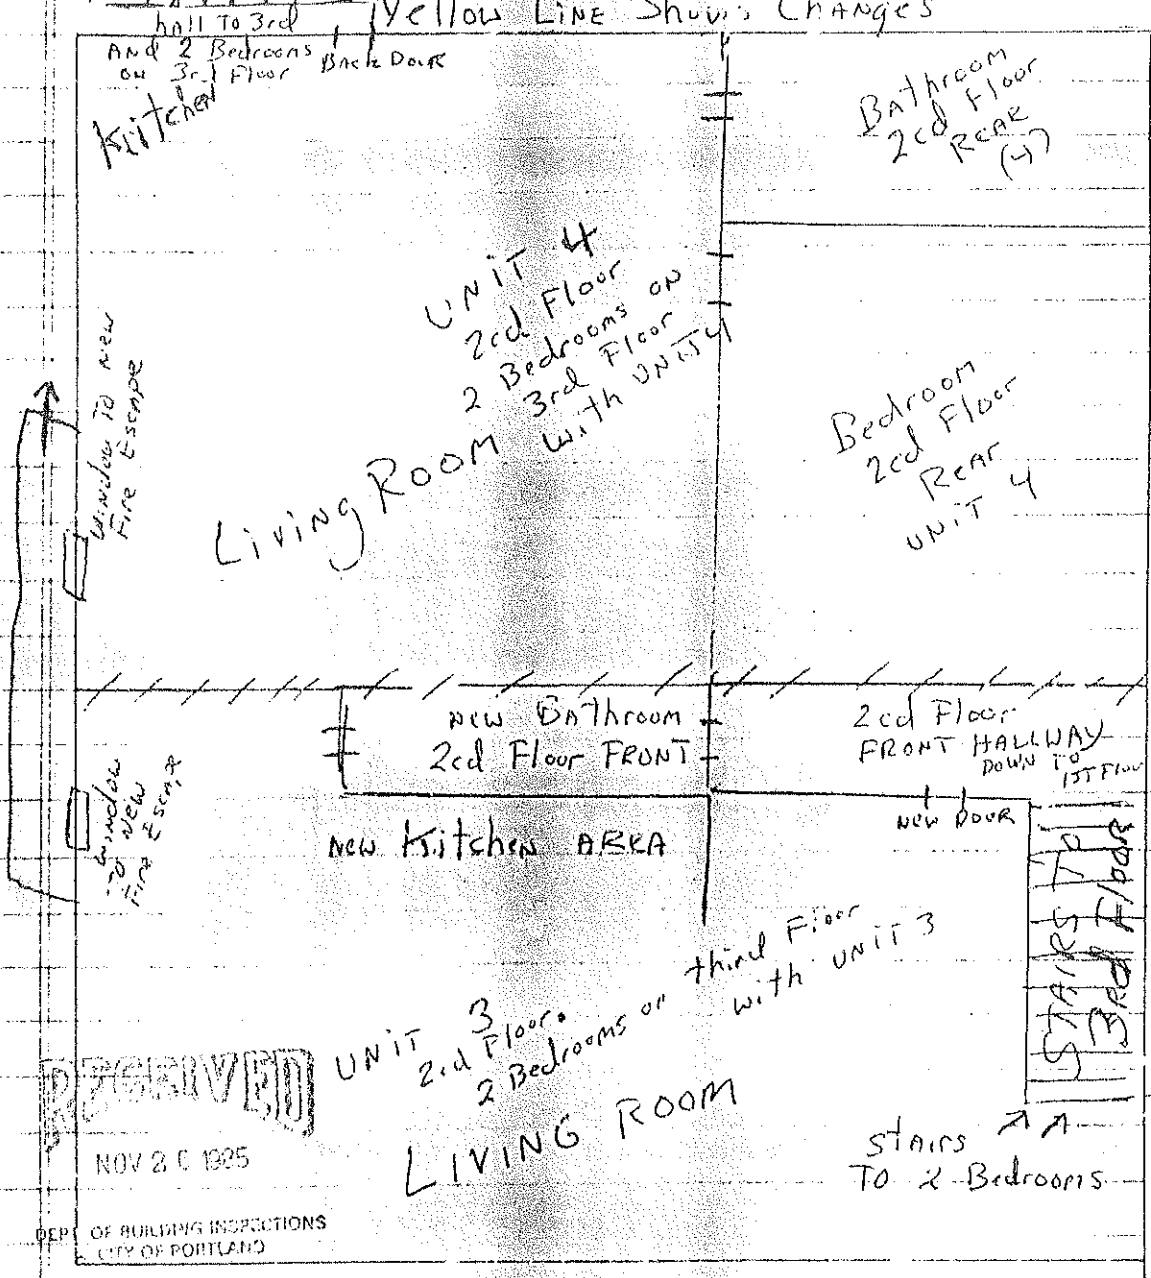 hall To 3rd
AND 2 Bedrooms
ON 3rd Floor
Yellow LINE Shows Changes
Back Door
Kitchen
BAthroom
2cd Floor
REAR
(4)
UNIT 4
2cd Floor
2 Bedrooms ON
3rd Floor
with UNIT 4
Living ROOM
Bedroom
2cd Floor
REAR
UNIT 4
Window TO New
Fire Escape
New BAthroom
2cd Floor FRONT
2cd Floor
FRONT HALLWAY
DOWN TO
1ST Floor
Window
To New
Fire Escape
New Kitchen AREA
New Door
STAIRS TO
3Rd Floor
UNIT 3
2cd Floor.
2 Bedrooms on third Floor
with UNIT 3
LIVING ROOM
stairs
TO 2 Bedrooms
RECEIVED
NOV 26
DEPT OF BUILDING INSPECTIONS
CITY OF PORTLAND